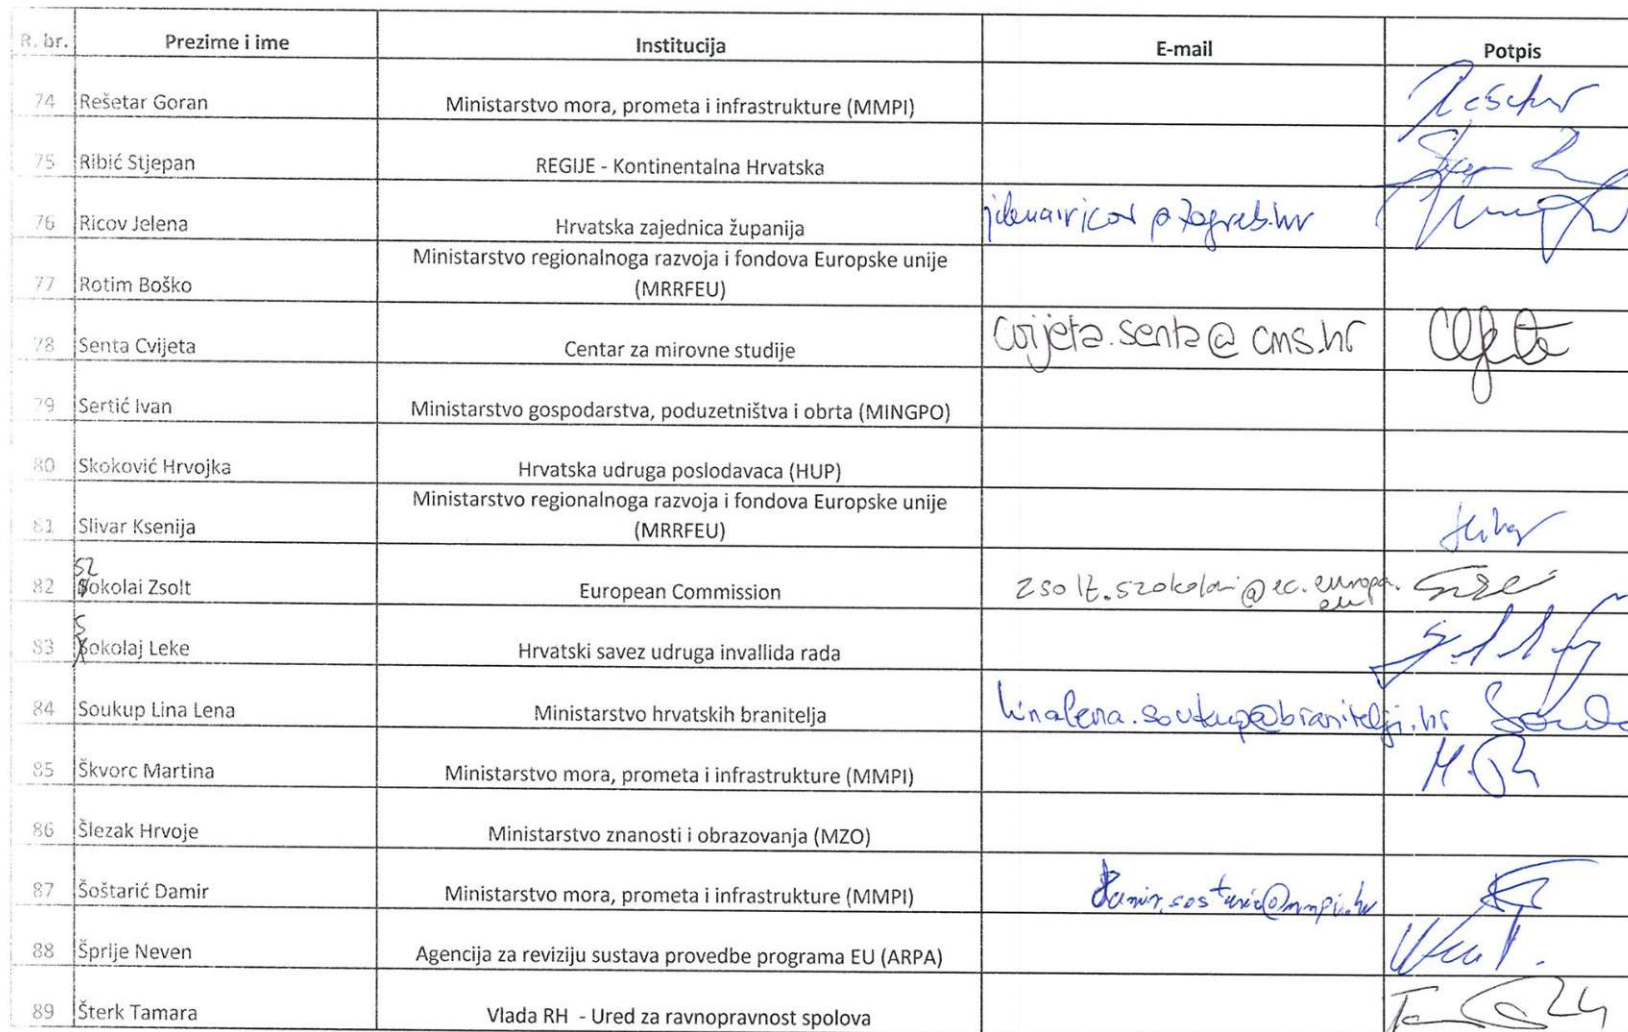 R. br. Prezime i ime Institucija E-mail Potpis
74 Rešetar Goran Ministarstvo mora, prometa i infrastrukture (MMPI)
75 Ribić Stjepan REGIJE - Kontinentalna Hrvatska
76 Ricov Jelena Hrvatska zajednica županija
77 Rotim Boško Ministarstvo regionalnoga razvoja i fondova Europske unije
(MRRFEU)
78 Senta Cvijeta Centar za mirovne studije cvijeta.senta@cms.hr
79 Sertić Ivan Ministarstvo gospodarstva, poduzetništva i obrta (MINGPO)
80 Skoković Hrvojka Hrvatska udruga poslodavaca (HUP)
81 Slivar Ksenija Ministarstvo regionalnoga razvoja i fondova Europske unije
(MRRFEU)
SZ
82 okolai Zsolt European Commission zsolt.szokolai@ec.europa.
eu
S
83 okolaj Leke Hrvatski savez udruga invallida rada
84 Soukup Lina Lena Ministarstvo hrvatskih branitelja linalena.soukup@branitelji.hr
85 Škvorc Martina Ministarstvo mora, prometa i infrastrukture (MMPI)
86 Šlezak Hrvoje Ministarstvo znanosti i obrazovanja (MZO)
87 Šoštarić Damir Ministarstvo mora, prometa i infrastrukture (MMPI) damir.sostaric@mmpi.hr
88 Šprlje Neven Agencija za reviziju sustava provedbe programa EU (ARPA)
89 Šterk Tamara Vlada RH - Ured za ravnopravnost spolova